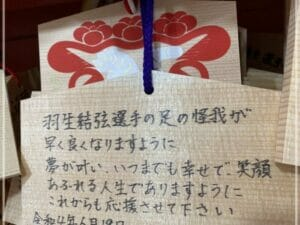 羽生結弦選手の足の怪我が
早く良くなりますように
夢が叶い、いつまでも幸せで、笑顔
あふれる人生でありますように
これからも応援させて下さい
令和4年6月19日